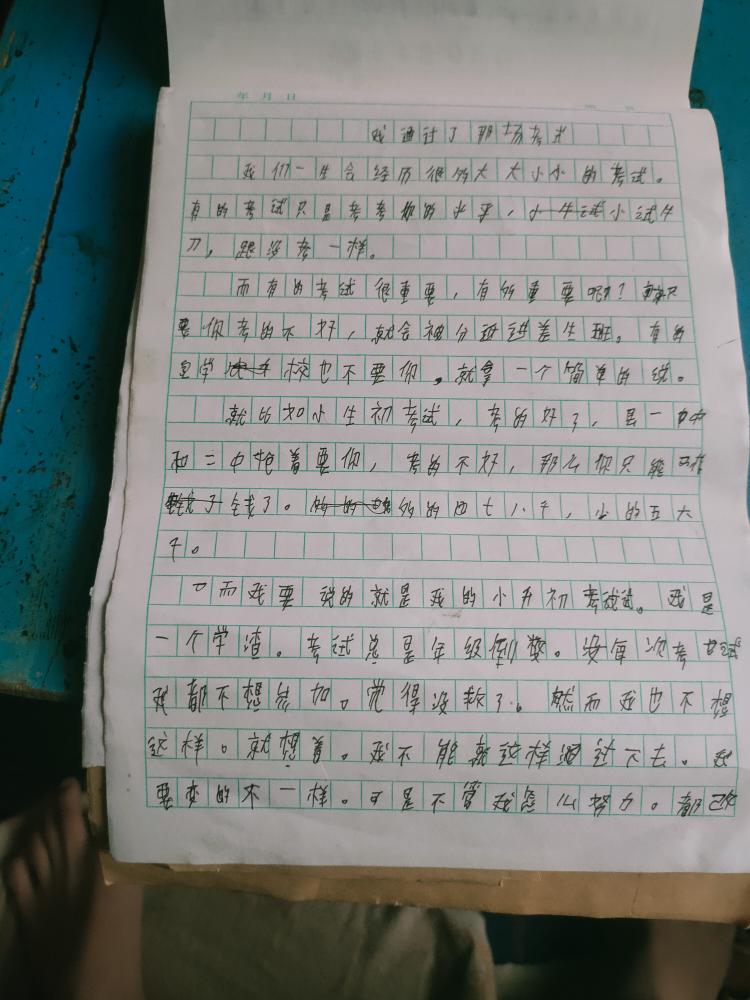 年 月 日
我通过了那场考试
我们一生会经历很多大大小小的考试。
有的考试只是考考你的水平，小试牛
刀，跟没考一样。
而有的考试很重要，有多重要呢？只
要你考的不好，就会被分班进差生班。有的
学校也不要你。就拿一个简单的说。
就的如小生初考试，考的好了，是一中
和二中抢着要你，考的不好，那么你只能
钱了。多的四七八千，少的五六
千。
而我要说的就是我的小升初考试。我是
一个学渣。考试总是年级倒数。没每次考试
我都不想参加。觉得没救了。然而我也不想
这样。就想着。我不能就这样过下去。我
要变的不一样。可是不管我怎么努力。都